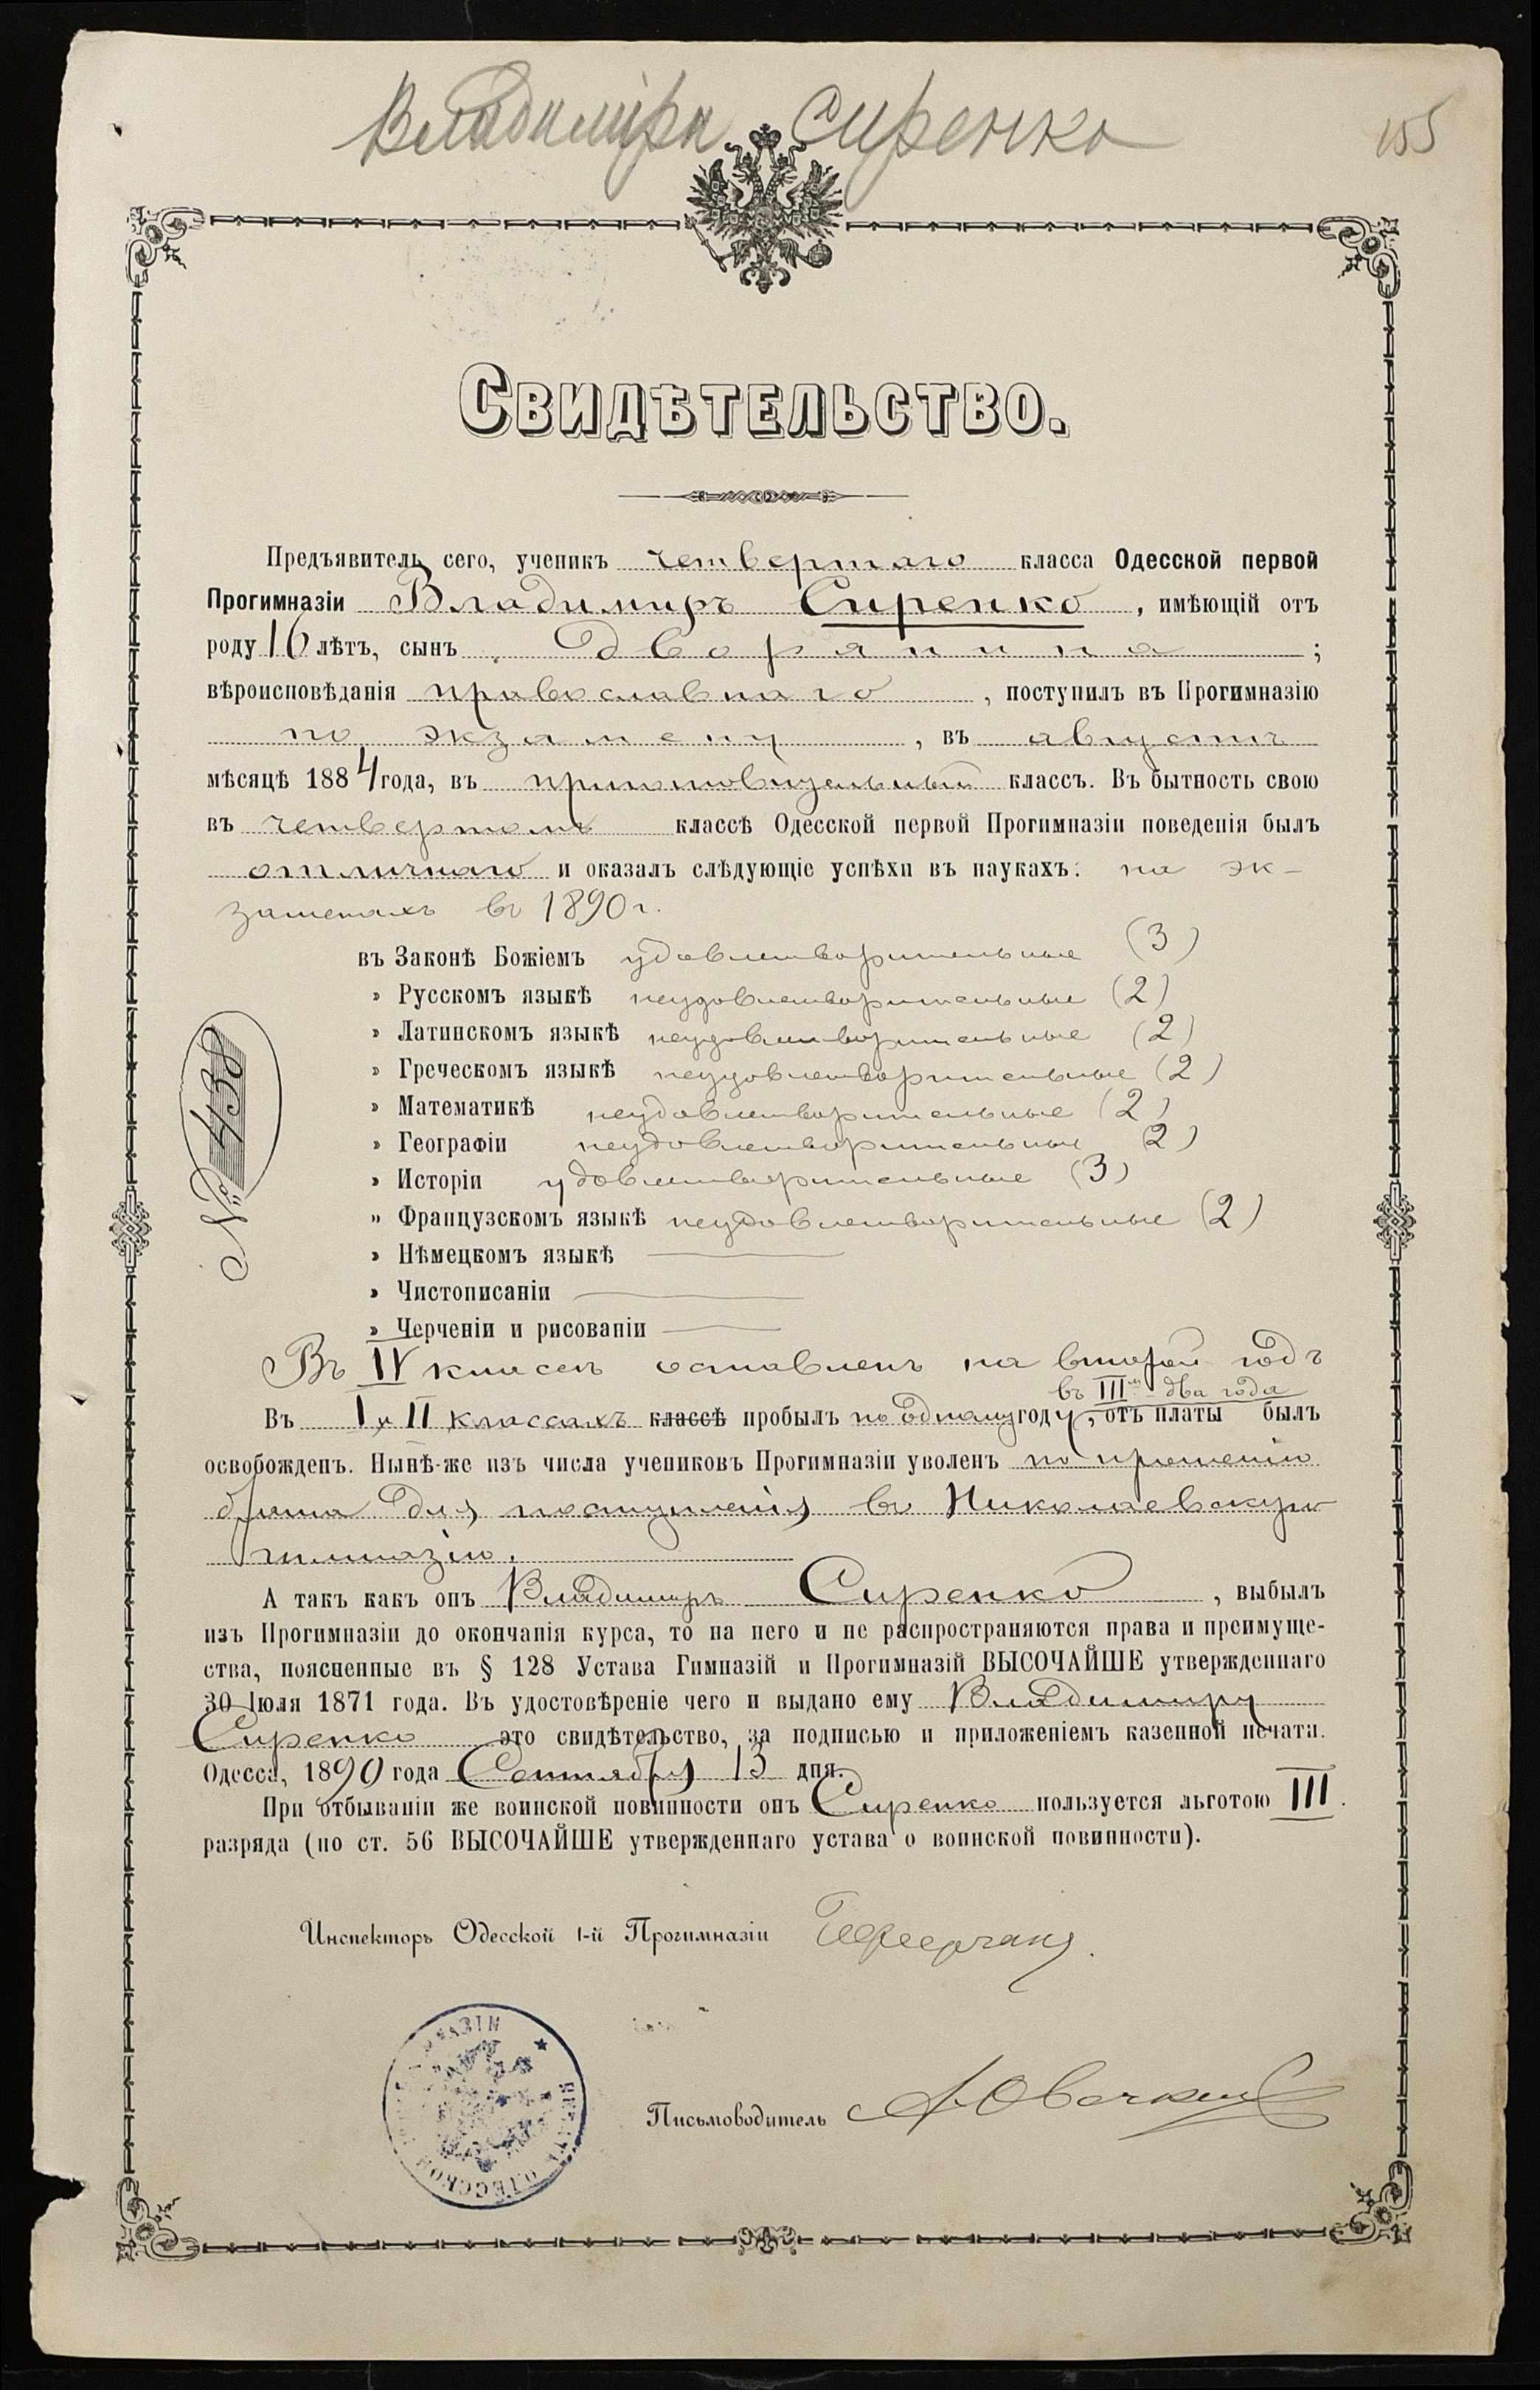 Владиміра Сиренко
155
Свидѣтельство.
Предъявитель сего, ученикъ четвертаго класса Одесской первой
Прогимназіи Владимиръ Сиренко, имѣющій отъ
роду 16 лѣтъ, сынъ дворянина;
вѣроисповѣданія православнаго, поступилъ въ Прогимназію
по экзамену, въ августѣ
мѣсяцѣ 1884 года, въ приготовительный классъ. Въ бытность свою
въ четвертомъ классѣ Одесской первой Прогимназіи поведенія былъ
отличнаго и оказалъ слѣдующіе успѣхи въ наукахъ: на эк-
заменахъ въ 1890 г.
въ Законѣ Божіемъ удовлетворительные (3)
» Русскомъ языкѣ неудовлетворительные (2)
» Латинскомъ языкѣ неудовлетворительные (2)
» Греческомъ языкѣ неудовлетворительные (2)
» Математикѣ неудовлетворительные (2)
» Географіи неудовлетворительные (2)
» Исторіи удовлетворительные (3)
» Французскомъ языкѣ неудовлетворительные (2)
» Нѣмецкомъ языкѣ —
» Чистописаніи —
» Черченіи и рисованіи —
№ 438
Въ IV классѣ оставленъ на второй годъ
въ III-мъ два года
Въ I и II классахъ классѣ пробылъ по одному году, отъ платы былъ
освобожденъ. Нынѣ-же изъ числа учениковъ Прогимназіи уволенъ по прошенію
брата для поступленія въ Николаевскую
гимназію.
А такъ какъ онъ Владимиръ Сиренко, выбылъ
изъ Прогимназіи до окончанія курса, то на него и не распространяются права и преимуще-
ства, поясненные въ § 128 Устава Гимназій и Прогимназій ВЫСОЧАЙШЕ утвержденнаго
30 Іюля 1871 года. Въ удостовѣреніе чего и выдано ему Владимиру
Сиренко это свидѣтельство, за подписью и приложеніемъ казенной печати.
Одесса, 1890 года Сентября 13 дня.
При отбываніи же воинской повинности онъ Сиренко пользуется льготою III.
разряда (по ст. 56 ВЫСОЧАЙШЕ утвержденнаго устава о воинской повинности).
Инспекторъ Одесской 1-й Прогимназіи
Письмоводитель